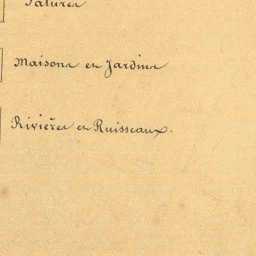 Patures
Maisons et Jardins
Rivières et Ruisseaux.